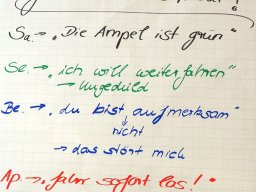 Sa. → „Die Ampel ist grün"
Se. → „ich will weiterfahren"
→ Ungeduld
Be. → „du bist aufmerksam"
nicht
→ das stört mich
Ap → „fahr sofort los!"